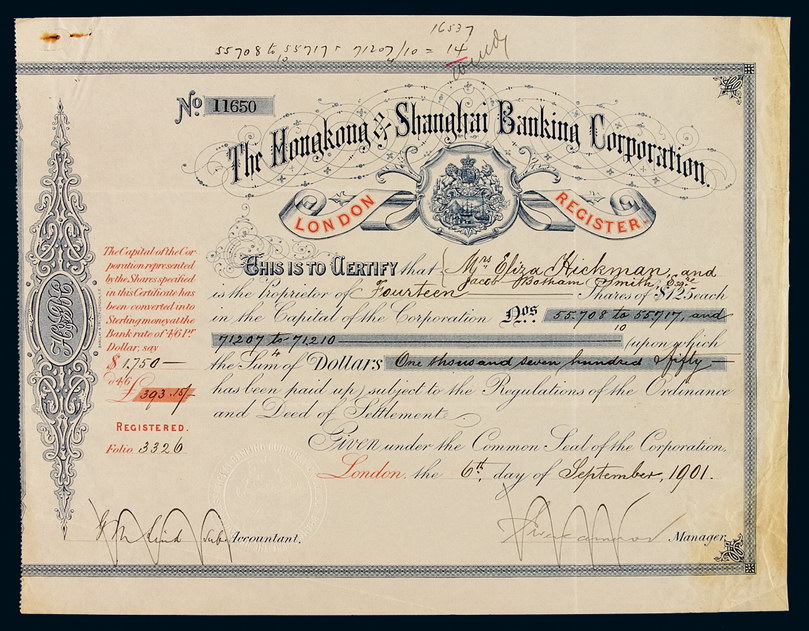 16537
55708 to 55717 = 71207/10 = 14
10 4
No. 11650
The Hongkong & Shanghai Banking Corporation.
LONDON REGISTER.
The Capital of the Cor-
poration represented
by the Shares specified
in this Certificate has
been converted into
Sterling money at the
Bank rate of 4/6 Pr.
Dollar, say
$ 1,750 —
@ 4/6
£ 393.15/-
REGISTERED.
Folio 3326
THIS IS TO CERTIFY that Mrs Eliza Hickman, and
Jacob Botham Smith, Esqre
is the Proprietor of Fourteen Shares of $125 each
in the Capital of the Corporation Nos 55708 to 55717, and
10
71207 to 71210 upon which
4
the Sum of Dollars One thousand seven hundred & fifty
has been paid up, subject to the Regulations of the Ordinance
and Deed of Settlement.
Given under the Common Seal of the Corporation.
London, the 6th day of September, 1901.
Sub Accountant.
Manager.